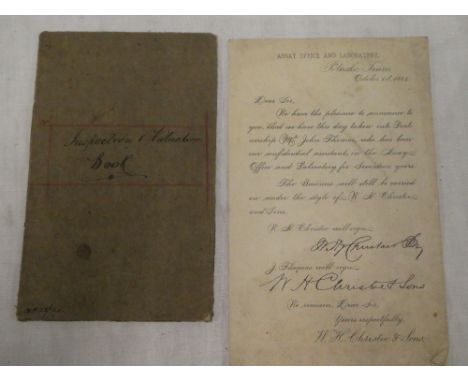 Inspection & Valuation
Book
ASSAY OFFICE AND LABORATORY,
Truro
October 1st, 188
Dear Sir,
We have the pleasure to announce to
you, that we have this day taken into Part-
nership Mr. John Thomas, who has been
our confidential assistant in the Assay
Office and Laboratory for Seventeen years.
The Business will still be carried
on under the style of W. H. Christoe
and Sons.
W. H. Christoe will sign
J. Thomas will sign
W H Christoe & Sons
We remain, Dear Sir,
Yours respectfully,
W. H. Christoe & Sons.